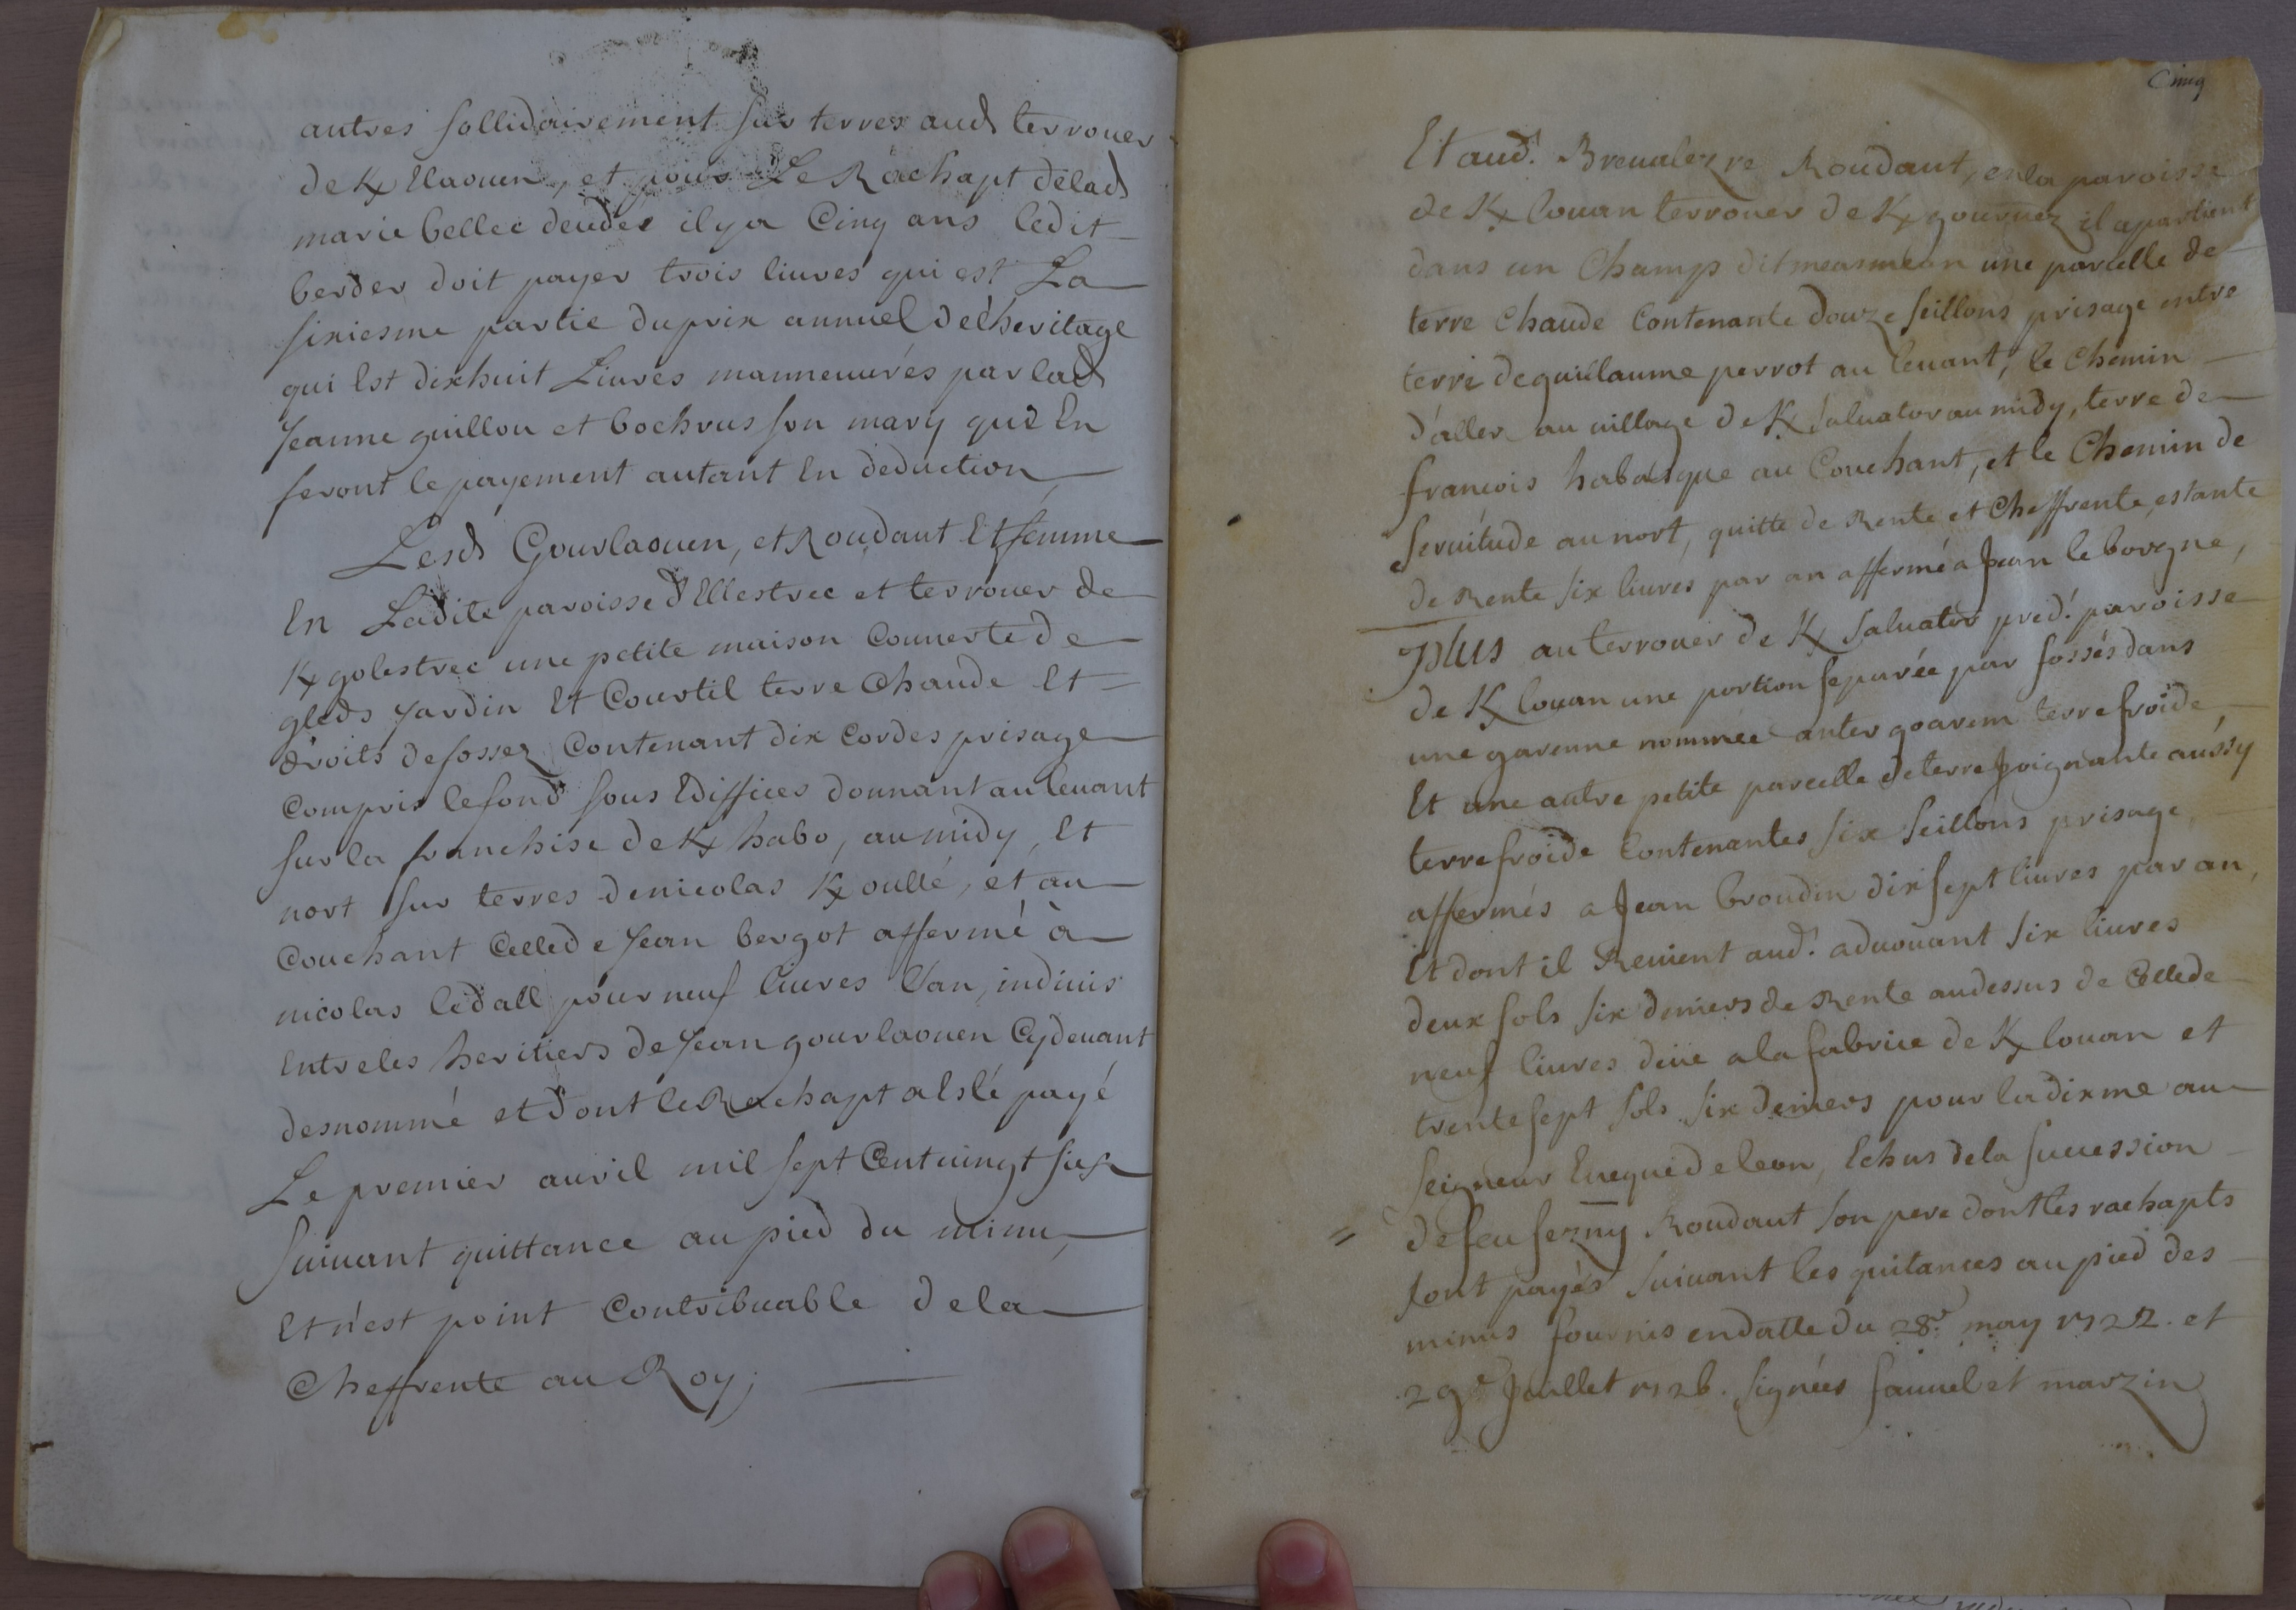 autres sollidairement sur terres aud terrouer
de Kr Elaouen, et pour Le Rachapt delad
marie bellec deudée il y a Cinq ans ledit
berder doit payer trois liures qui est La
sixiesme partie du prix annuel de l'heritage
qui Est dixhuit Liures manneuurés par lad
Jeanne guillou et bochrus son mary qui En
feront le payement autant En deduction
Lesd Gourlaouen, et Roudaut Et femme
En Ladite paroisse d'Ellestrec et terrouer de
Kr golestrec une petite maison Couuerte de
gleds Jardin Et Courtil terre Chaude Et =
droits de fossez Contenant dix Cordes prisage
Compris le fond sous Ediffices donnant au leuant
sur la franchise de Kr habo, au midy, Et
nort sur terres de nicolas Kr oullé, et au
Couchant Celle de Jean bergot affermé à
nicolas ledall pour neuf liures L'an, indiuis
Entre les heritiers de Jean gourlaouen Cydeuant
desnommé et dont le Rachapt a Esté payé
Le premier auril mil sept Cent uingt six
suiuant quittance au pied du minu,
Et n'est point Contribuable de la
Cheffrente au Roy;
Cinq
Et aud. Breualezre Roudaut, en la paroisse
de Kr louan terrouer de Kr gournez il apartient
dans un Champ dit measmean une parcelle de
terre Chaude Contenante douze seillons prisage entre
terre de guillaume perrot au leuant, le Chemin
d'aller au uillage de Kr saluator au midy, terre de
francois habasque au Couchant, et le Chemin de
seruitude au nort, quitte de Rente et Cheffrente, estante
de Rente six liures par an affermé a Jean le borgne,
Plus au terrouer de Kr saluator pred. paroisse
de Kr louan une portion separée par fossés dans
une garenne nommée anter goarem terre froide,
Et une autre petite parcelle de terre Joignante aussy
terre froide Contenantes six seillons prisage,
affermés a Jean broudin dixsept liures par an,
Et dont il Reuient aud. aduouant six liures
deux sols six deniers de Rente audessus de Celle de
neuf liures deüe a la fabrice de Kr louan et
trente sept sols six deniers pour la dixme au
seigneur Eueque de leon, Echus de la succession
= de feu sezny Roudaut son pere dont les rachapts
sont payés suiuant les quitances au pied des
minus fournis en datte du 28e may 1722. et
29e Juillet 1726. signées fauuel et marzin